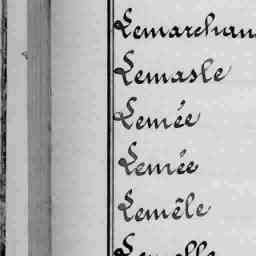 Lemarchan
Lemasle
Lemée
Lemée
Lemêle